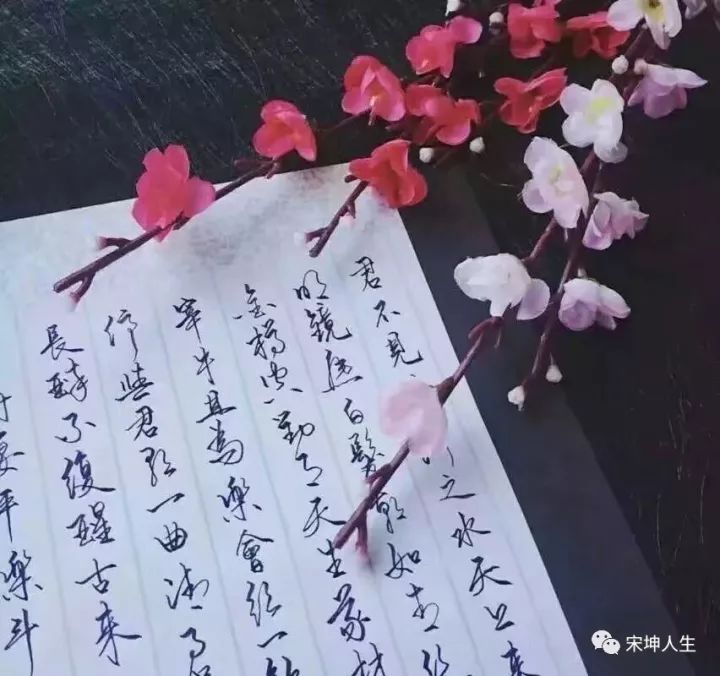 君不見之水天上來
明鏡悲白髮朝如青絲
金樽空對月天生我材
宰牛且為樂會須一
停與君歌一曲請君
長醉不復醒古來
時宴平樂斗
宋坤人生